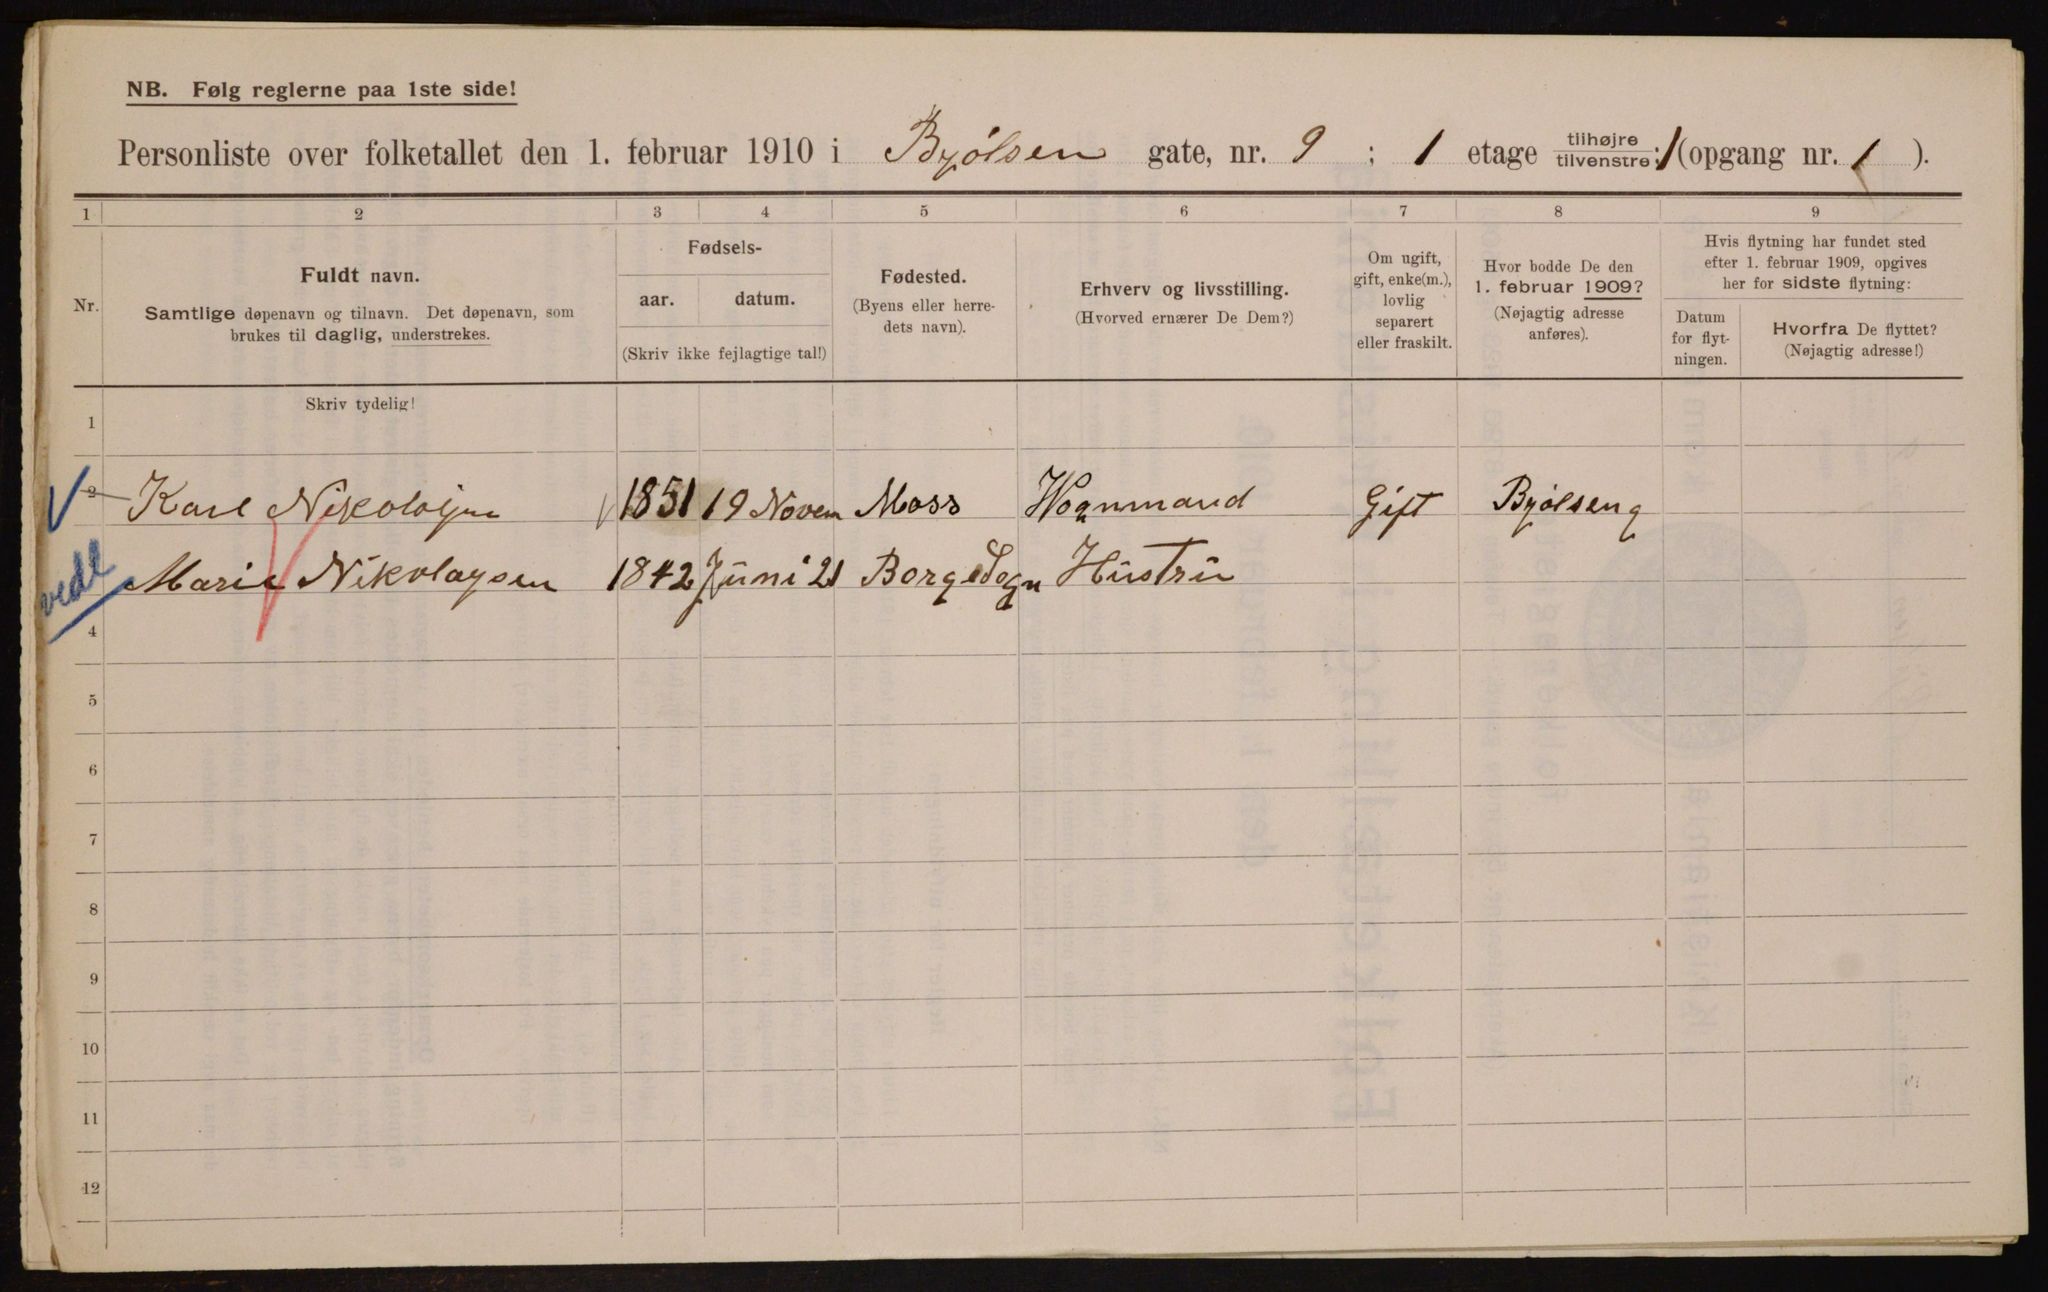 NB. Følg reglerne paa 1ste side!
Personliste over folketallet den 1. februar 1910 i Bjølsen gate, nr. 9 ; 1 etage tilhøjre/tilvenstre: 1 (opgang nr. 1 ).
1 2 3 4 5 6 7 8 9
Nr.
Fuldt navn.
Samtlige døpenavn og tilnavn. Det døpenavn, som
brukes til daglig, understrekes.
Fødsels-
aar. datum.
(Skriv ikke fejlagtige tal!)
Fødested.
(Byens eller herre-
dets navn).
Erhverv og livsstilling.
(Hvorved ernærer De Dem?)
Om ugift,
gift, enke(m.),
lovlig
separert
eller fraskilt.
Hvor bodde De den
1. februar 1909?
(Nøjagtig adresse
anføres).
Hvis flytning har fundet sted
efter 1. februar 1909, opgives
her for sidste flytning:
Datum
for flyt-
ningen.
Hvorfra De flyttet?
(Nøjagtig adresse!)
Skriv tydelig!
1
2 Karl Nikolaisen 1851 19 Novem Moss Wognmand Gift Bjølseng
vedl Marie Nikolaysen 1842 Juni 21 Borge Sogn Hustru
4
5
6
7
8
9
10
11
12